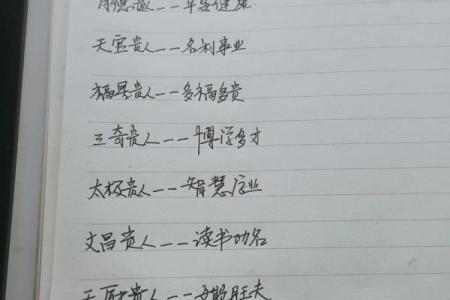 月德贵人——平安健康
天官贵人——名利事业
福星贵人——多福多贵
三奇贵人——博学多才
太极贵人——智慧学业
文昌贵人——读书功名
天厨贵人——旺夫